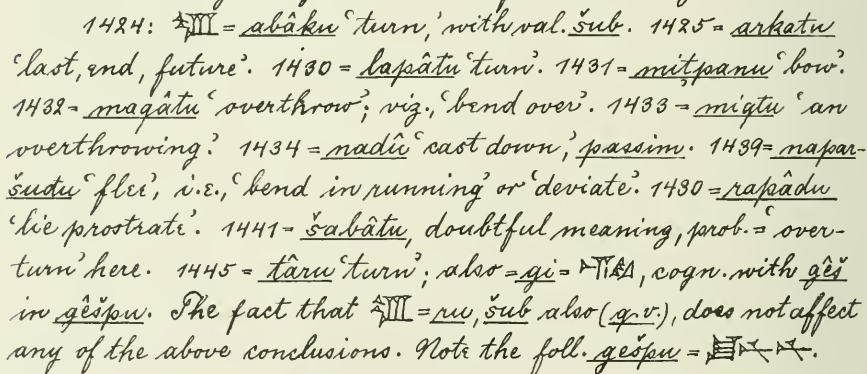 1424: 𒊒 = abâku ‘turn,’ with val. šub. 1425 = arkatu
‘last, end, future’. 1430 = lapâtu ‘turn’. 1431 = mitpanu ‘bow’.
1432 = maqâtu ‘overthrow’; viz., ‘bend over’. 1433 = miqtu ‘an
overthrowing.’ 1434 = nadû ‘cast down,’ passim. 1439 = napar-
šudu ‘flee’, i.e., ‘bend in running’ or ‘deviate’. 1430 = rapâdu
‘lie prostrate’. 1441 = šabâtu, doubtful meaning, prob. = ‘over-
turn’ here. 1445 = târu ‘turn’; also = gi = 𒄀, cogn. with gêš
in gêšpu. The fact that 𒊒 = ru, šub also (q.v.), does not affect
any of the above conclusions. Note the foll. gešpu =